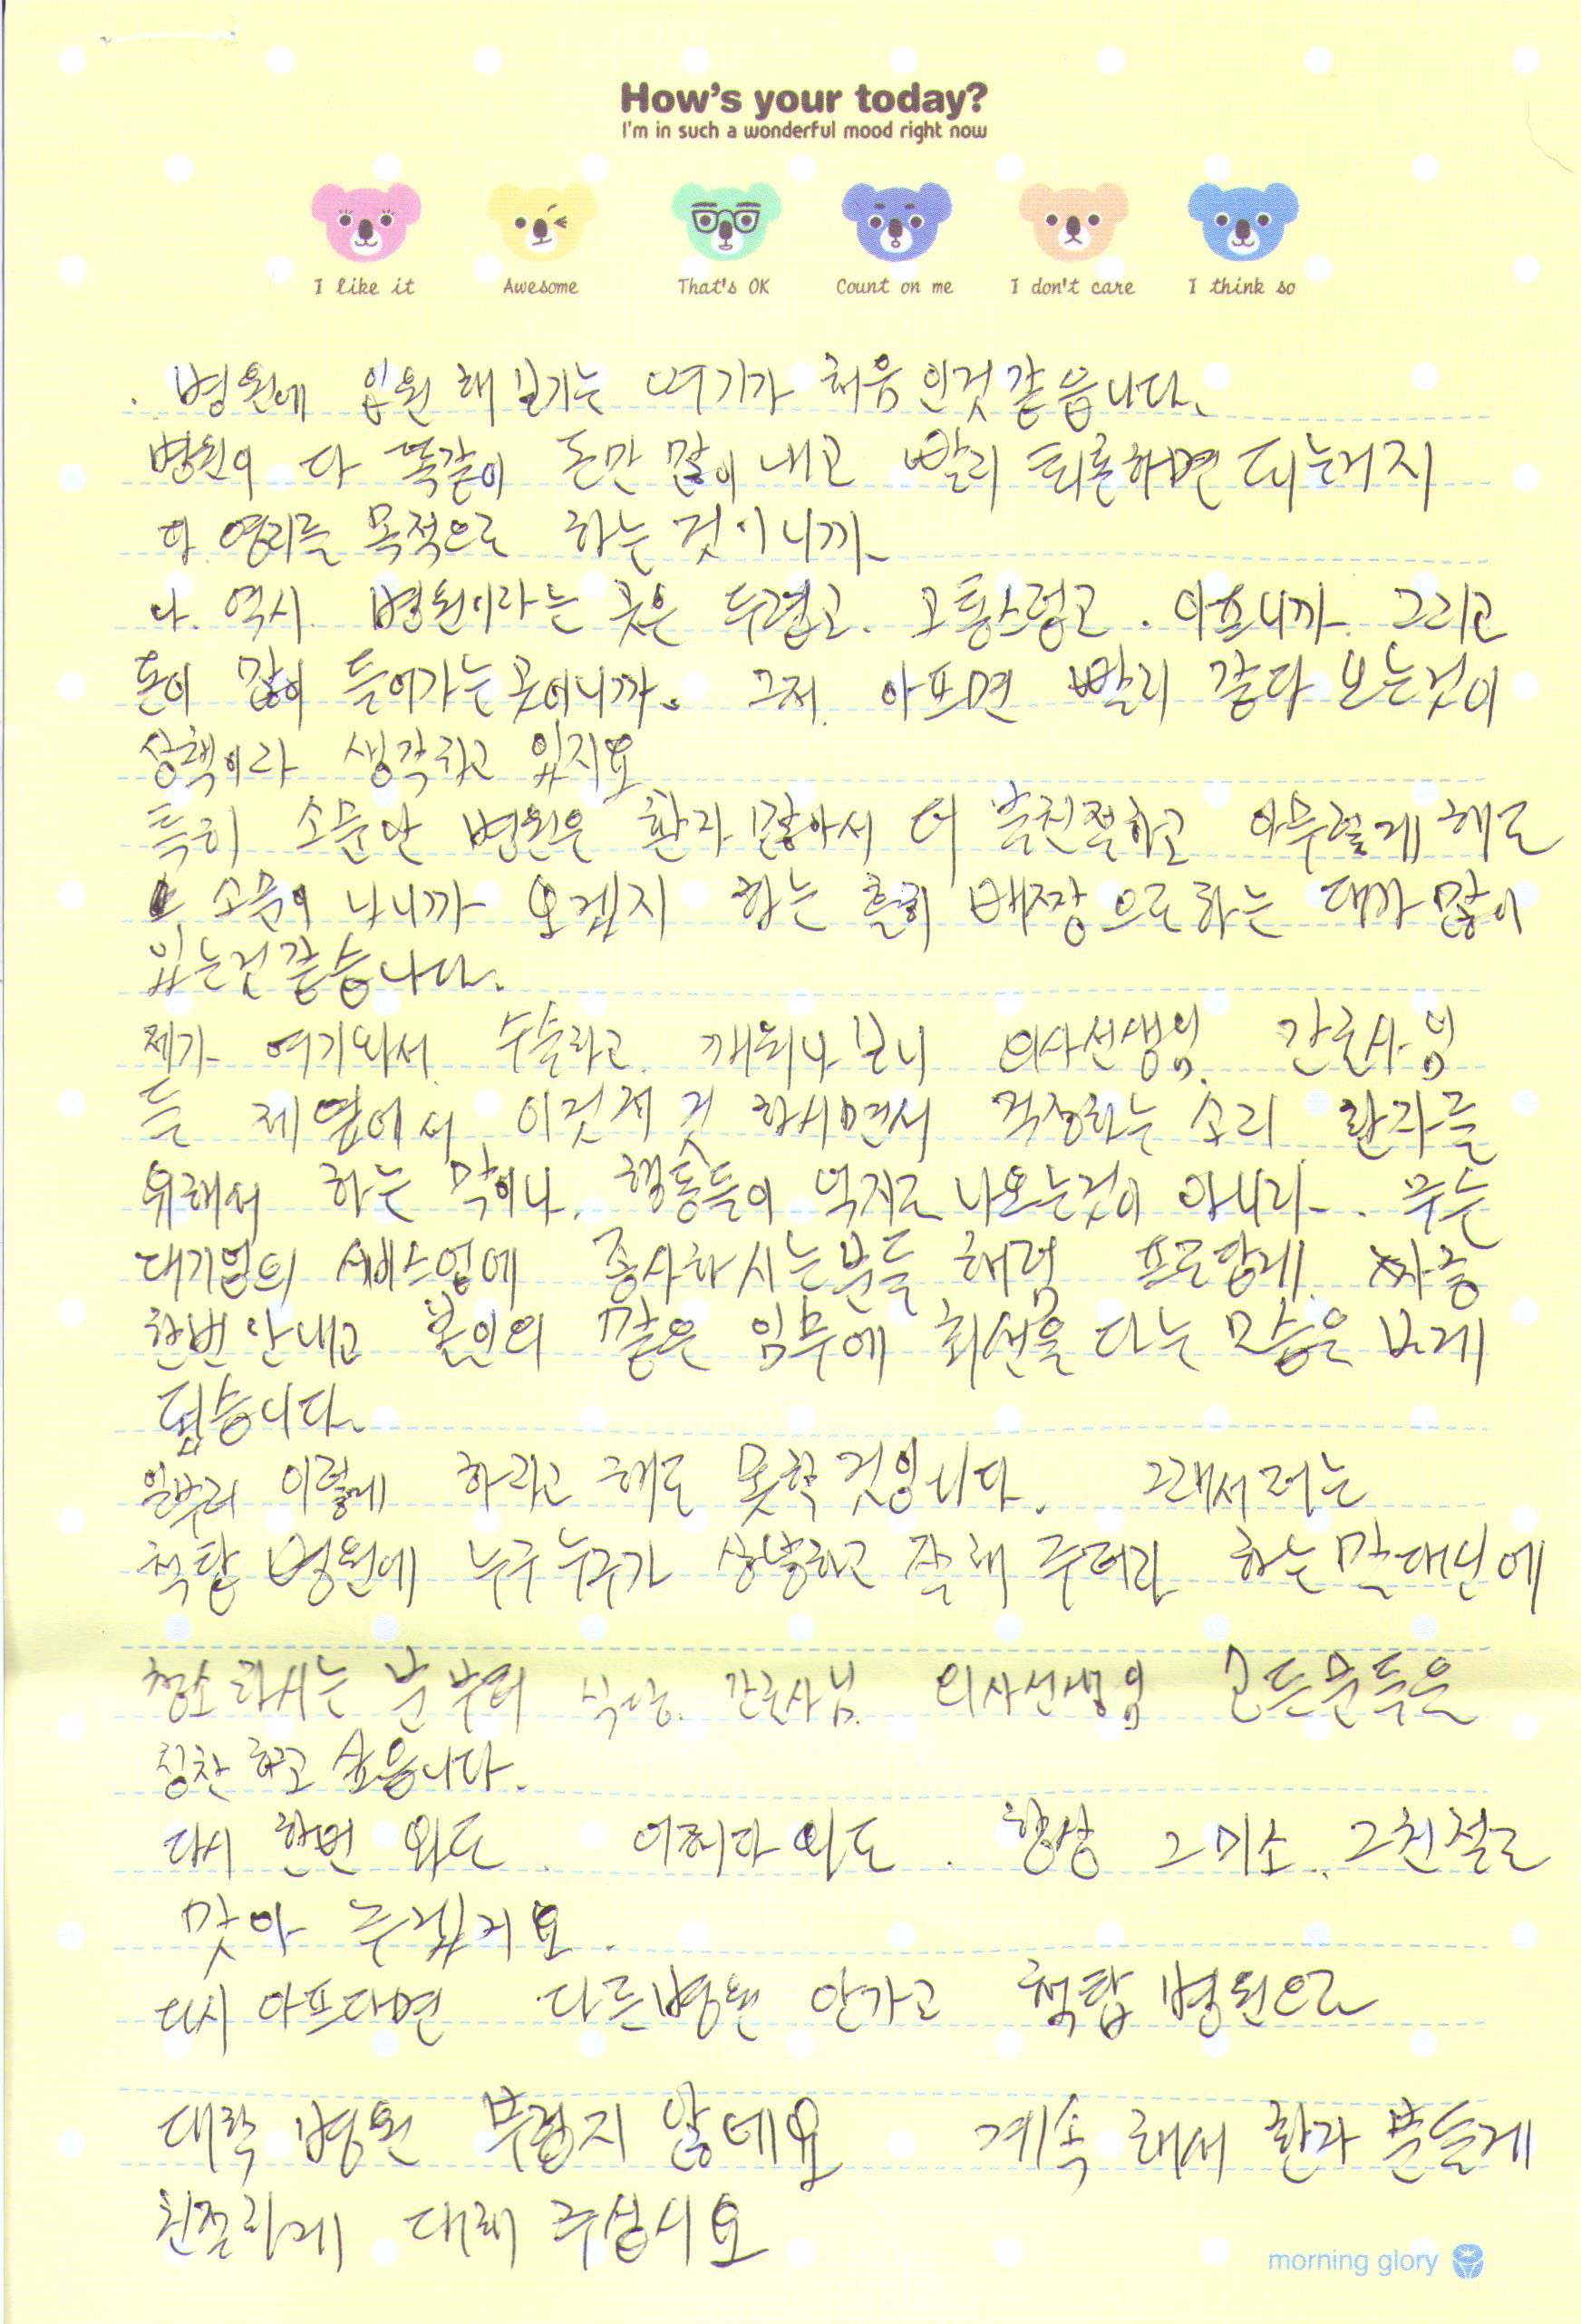 How's your today?
I'm in such a wonderful mood right now
I like it Awesome That's OK Count on me I don't care I think so
병원에 입원 해 보기는 여기가 처음 인것 같읍니다.
병원이 다 똑같이 돈만 많이 내고 빨리 퇴원하면 되는거지
다 영리를 목적으로 하는 것이니까
나 역시 병원이라는 곳은 두렵고. 고통스럽고. 아프니까. 그리고
돈이 많이 들어가는 곳이니까. 그저 아프면 빨리 갔다 오는것이
상책이라 생각하고 있지요
특히 소문난 병원은 환자 많아서 더 불친절하고 아무렇게 해도
소문이 나니까 오겠지 하는 배짱으로 하는 데가 많이
있는것 같습니다.
제가 여기와서 수술하고 깨워나 보니 의사선생님. 간호사님
들 제 옆에서 이것저것 하시면서 걱정하는 소리 환자를
위해서 하는 말이나. 행동들이 억지로 나오는것이 아니라. 무슨
대기업의 서비스업에 종사하시는분들 처럼 프로답게 짜증
한번 안내고 본인의 맡은 임무에 최선을 다는 모습을 보게
됐습니다.
일부러 이렇게 하라고 해도 못할 것입니다. 그래서 저는
척탑 병원에 누구누구가 상냥하고 잘해 주더라 하는 말 대신에
청소하시는 분부터 식당. 간호사님. 의사선생님 모든분들을
칭찬 하고 싶읍니다.
다시 한번 와도. 어쩌다 와도. 항상 그미소.. 그친절로
맞아 주겠지요.
다시 아프다면 다른병원 안가고 척탑 병원으로
대학 병원 부럽지 않네요 계속 해서 환자 분들게
친절하게 대해 주십시요
morning glory